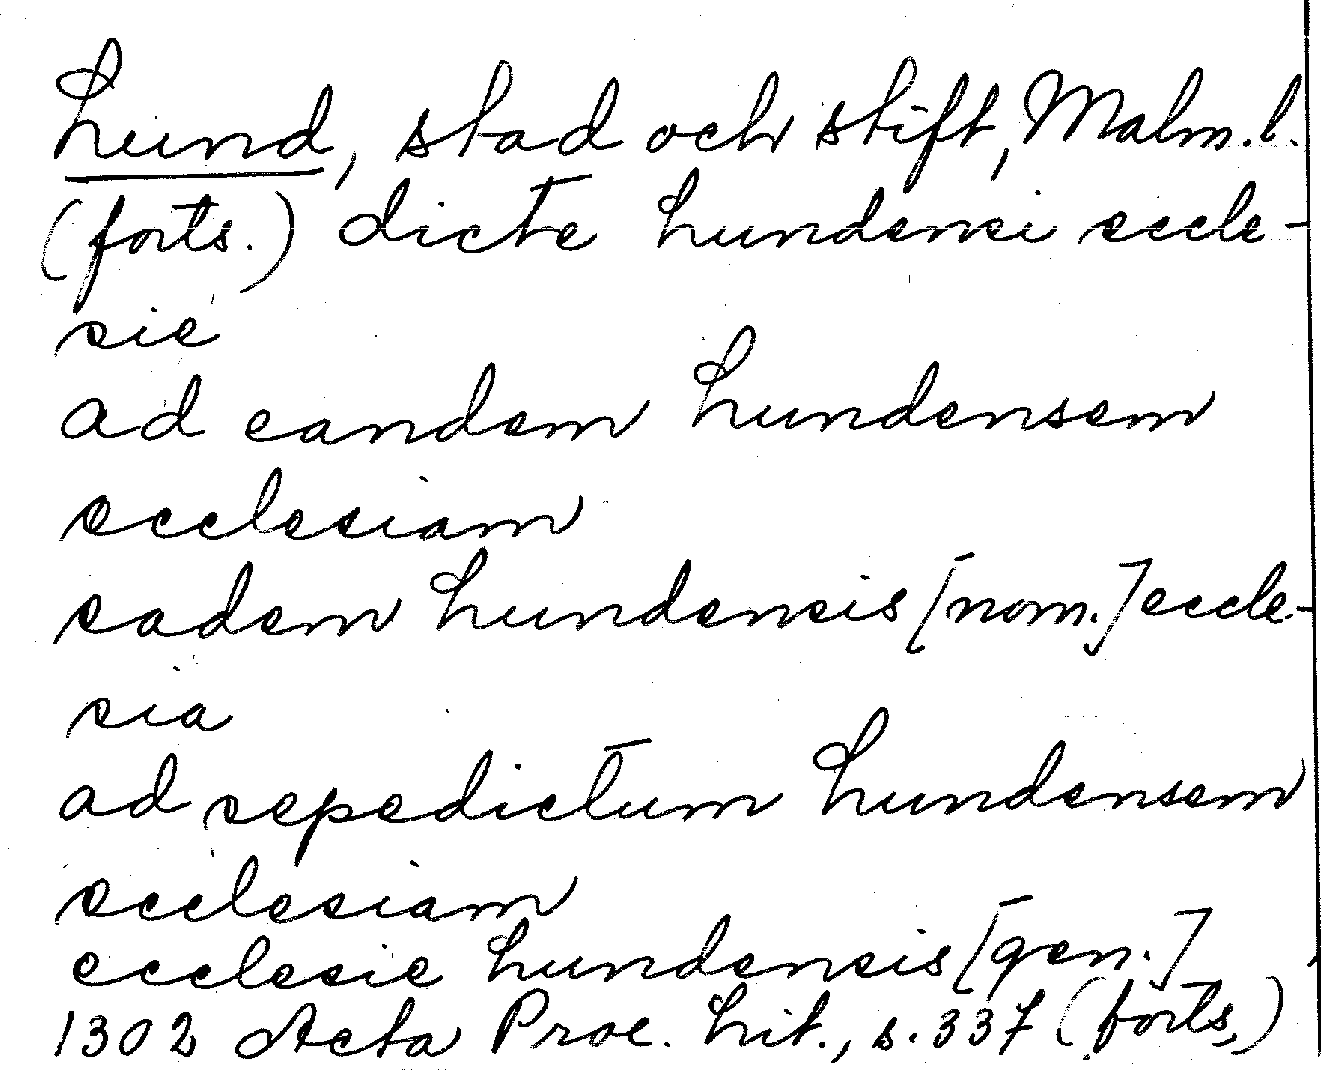 Lund, stad och stift, Malm.l.
(forts.) dicte Lundensi eccle-
sie
ad eandem Lundensem
ecclesiam
eadem Lundensis [nom.] eccle-
sia
ad sepedictum Lundensem
ecclesiam
ecclesie Lundensis [gen.]
1302 Acta Proc. Lit., s. 337 (forts.)